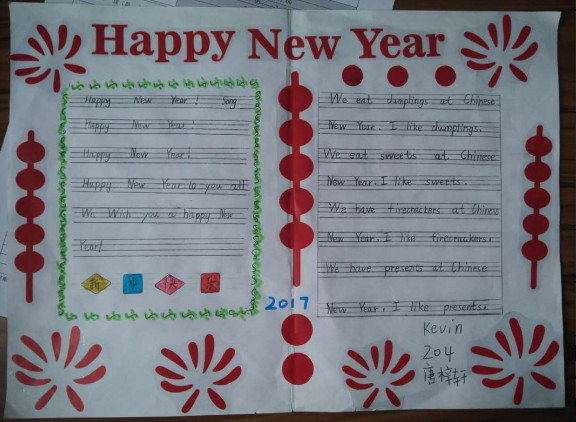 Happy New Year
Happy New Year! Song
Happy New Year!
Happy New Year!
Happy New Year to you all
We Wish you a happy New
Year!
新 年 快 乐
We eat dumplings at Chinese
New Year. I like dumplings.
We eat sweets at Chinese
New Year. I like sweets.
We have firecrackers at Chinese
New Year. I like firecrackers.
We have presents at Chinese
New Year. I like presents.
2017
Kevin
204
唐梓轩